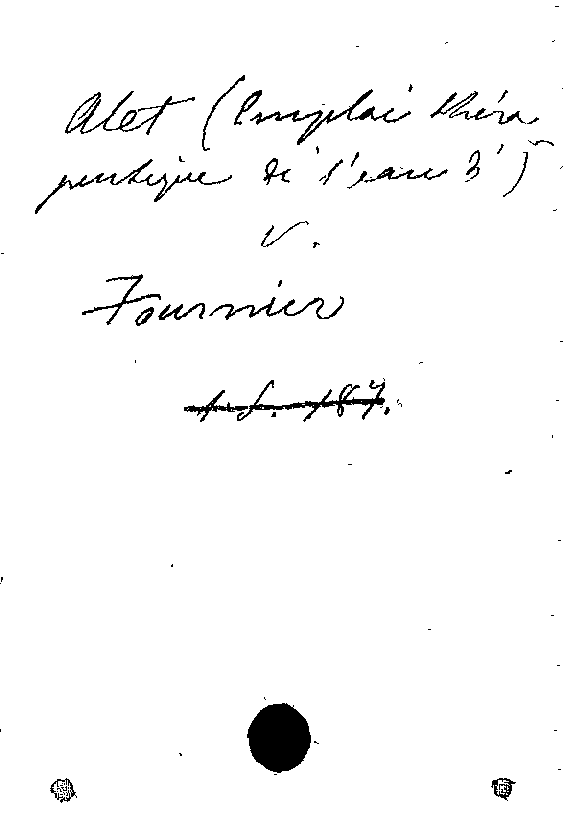 Alet (Emploi théra
peutique de l'eau d')
V.
Fournier
1. S. 187.